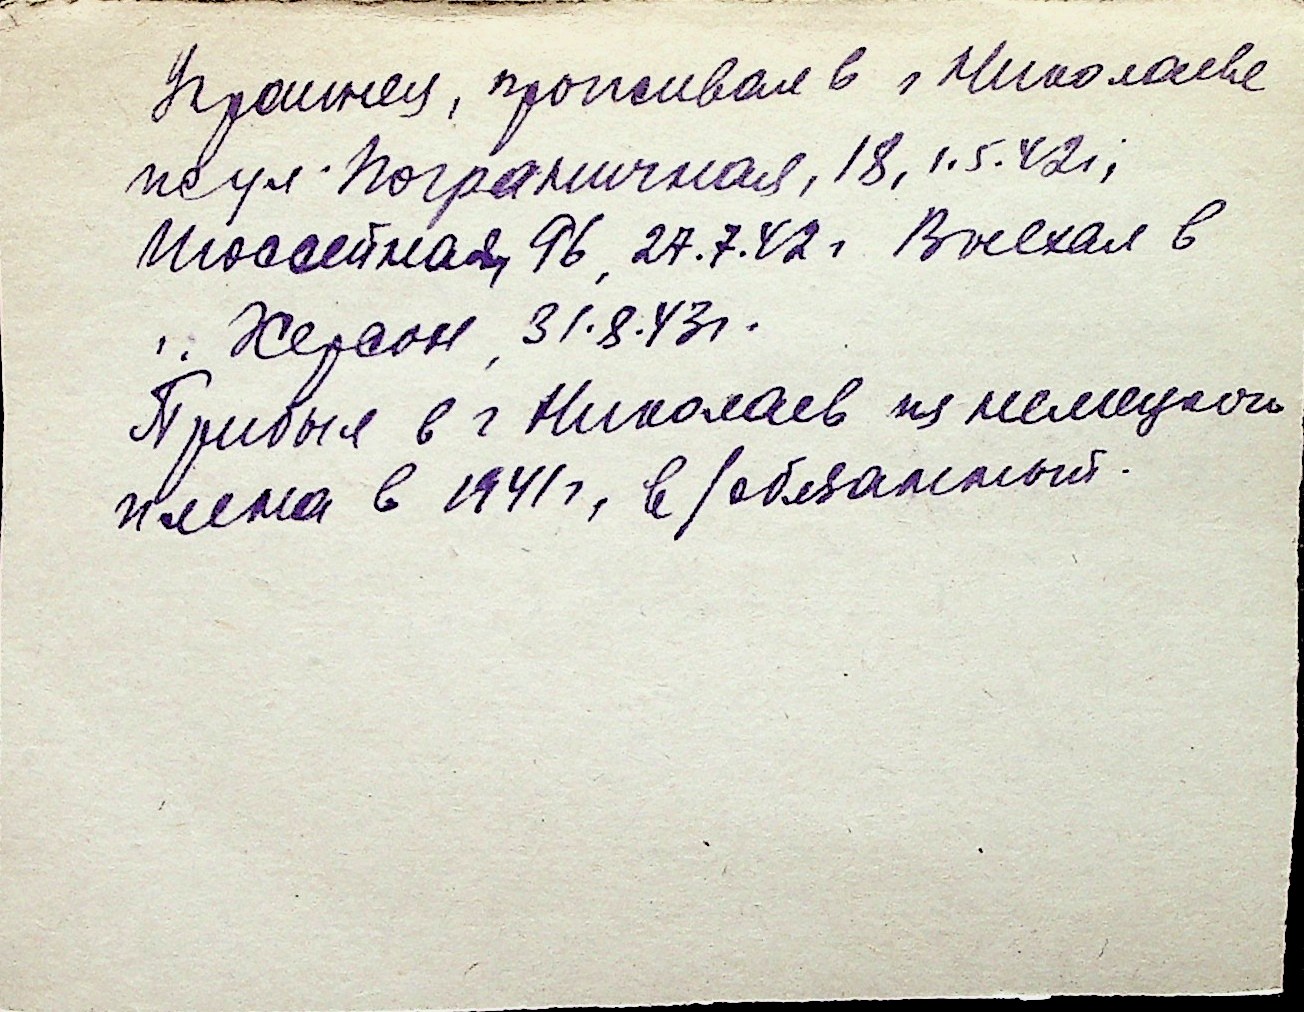 Украинец, проживал в г Николаеве
по ул. Пограничная, 18, 1.5.42г;
Шоссейная, 96, 27.7.42г Выехал в
г. Херсон, 31.8.43г.
Прибыл в г Николаев из немецкого
плена в 1941г, в/обязанный.